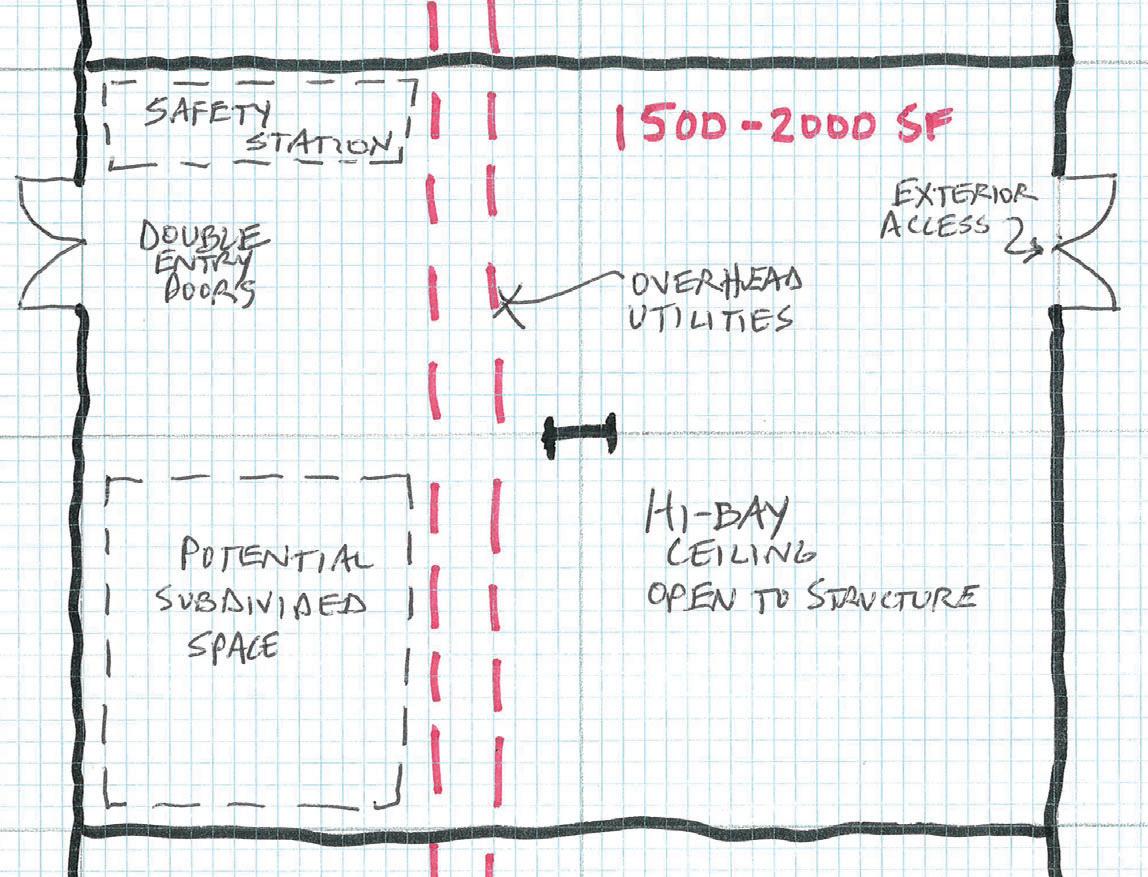 SAFETY
STATION
1500-2000 SF
EXTERIOR
ACCESS
DOUBLE
ENTRY
DOORS
OVERHEAD
UTILITIES
HI-BAY
CEILING
OPEN TO STRUCTURE
POTENTIAL
SUBDIVIDED
SPACE